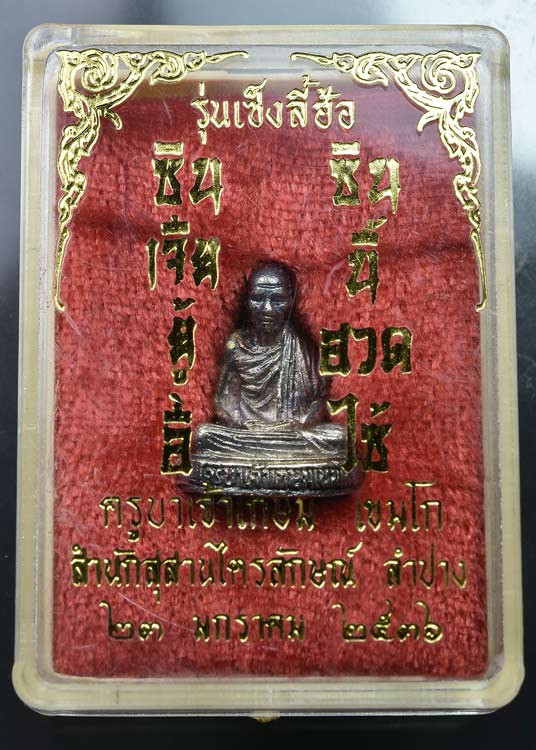 รุ่นเซ็งลี้ฮ้อ
ซิน เจีย ยู่ อี่
ซิน นี้ ฮวด ไช้
ครูบาเจ้าเกษม เขมโก
สำนักสุสานไตรลักษณ์ ลำปาง
๒๓ มกราคม ๒๕๓๖